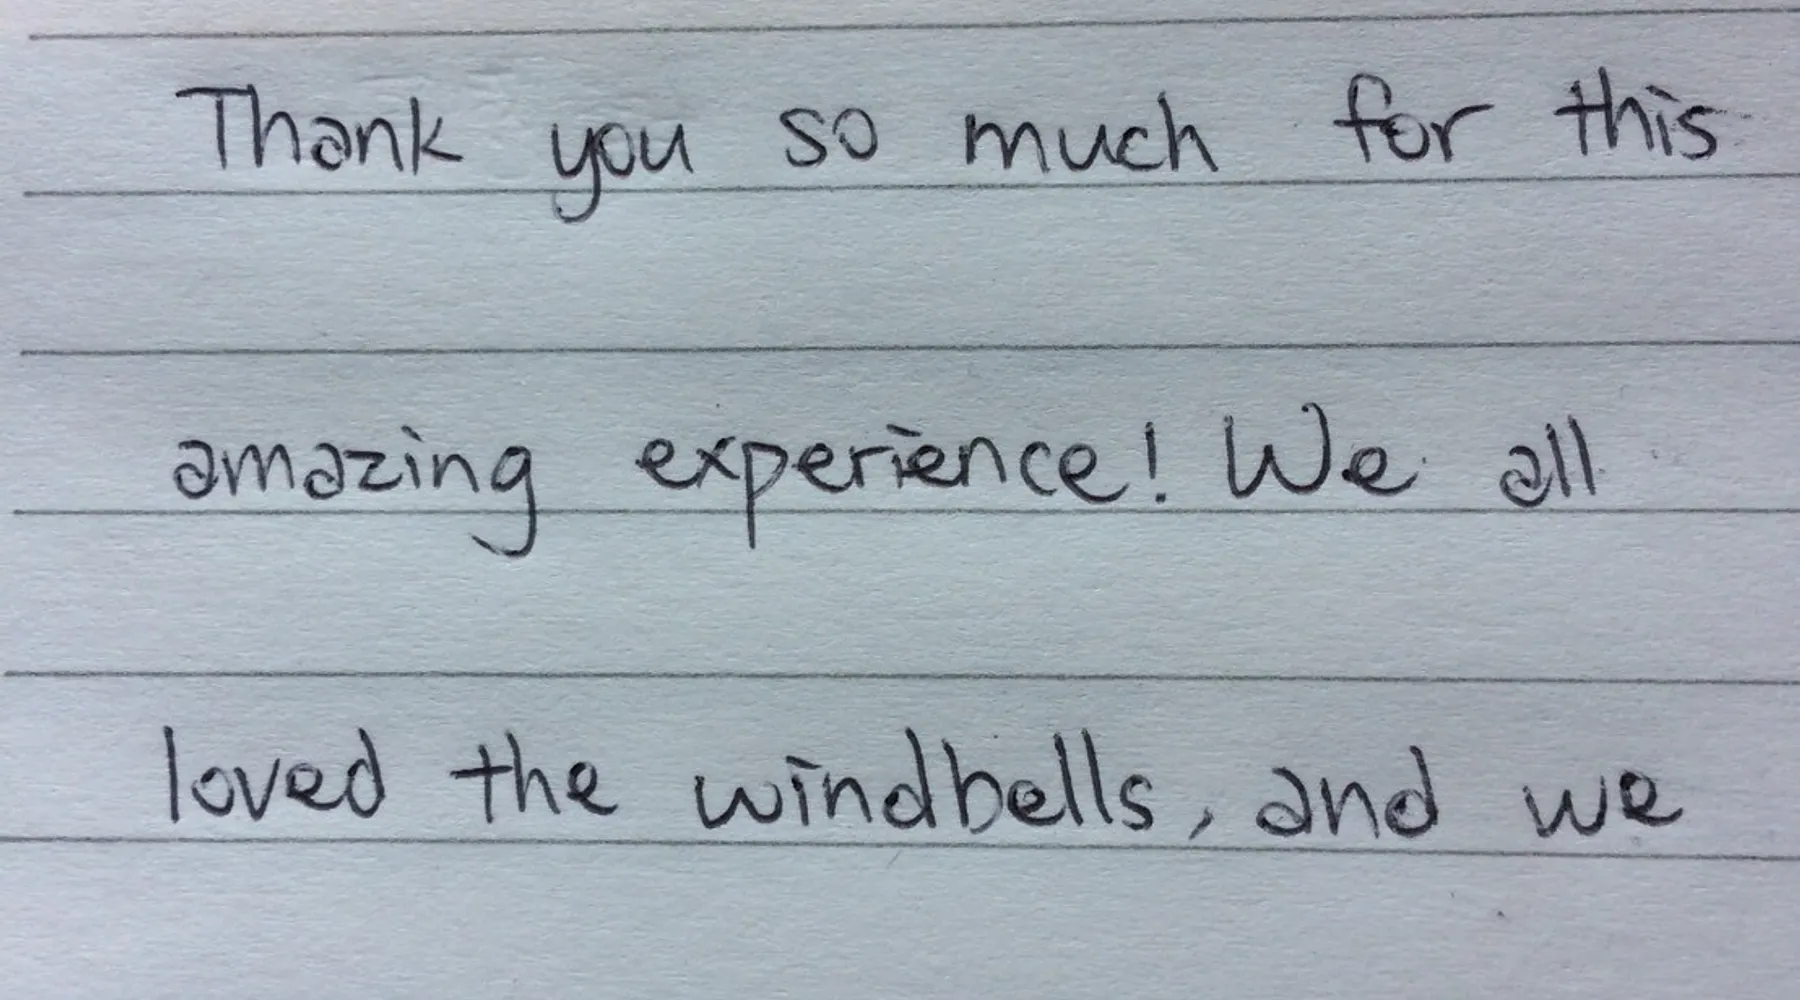 Thank you so much for this
amazing experience! We all
loved the windbells, and we